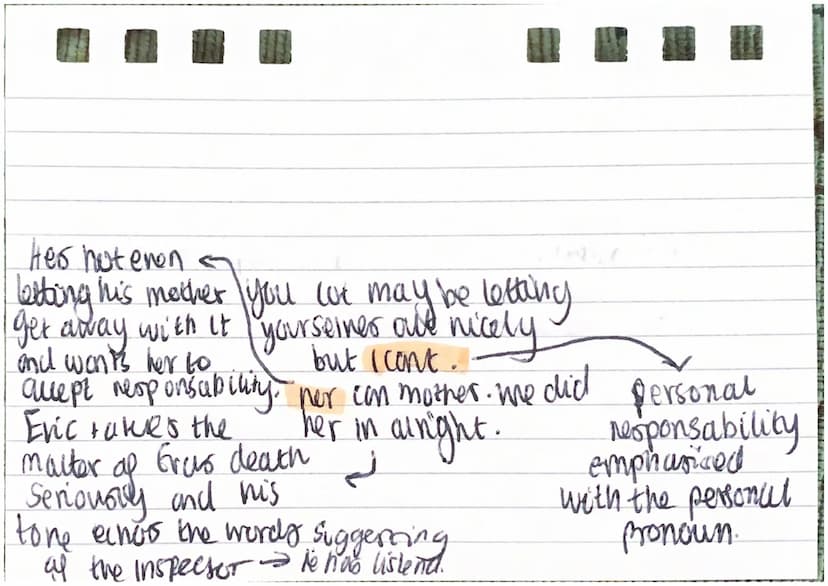 Hes not even
letting his mother
get away with it
and wants her to
accept responsability.
Eric takes the
matter of Evas death
seriously and his
tone echos the words suggesting
of the inspector → he has listend.
you lot may be letting
yourselves out nicely
but I cant.
nor can mother. we did
her in alright.
personal
responsability
emphasised
with the personal
pronoun.